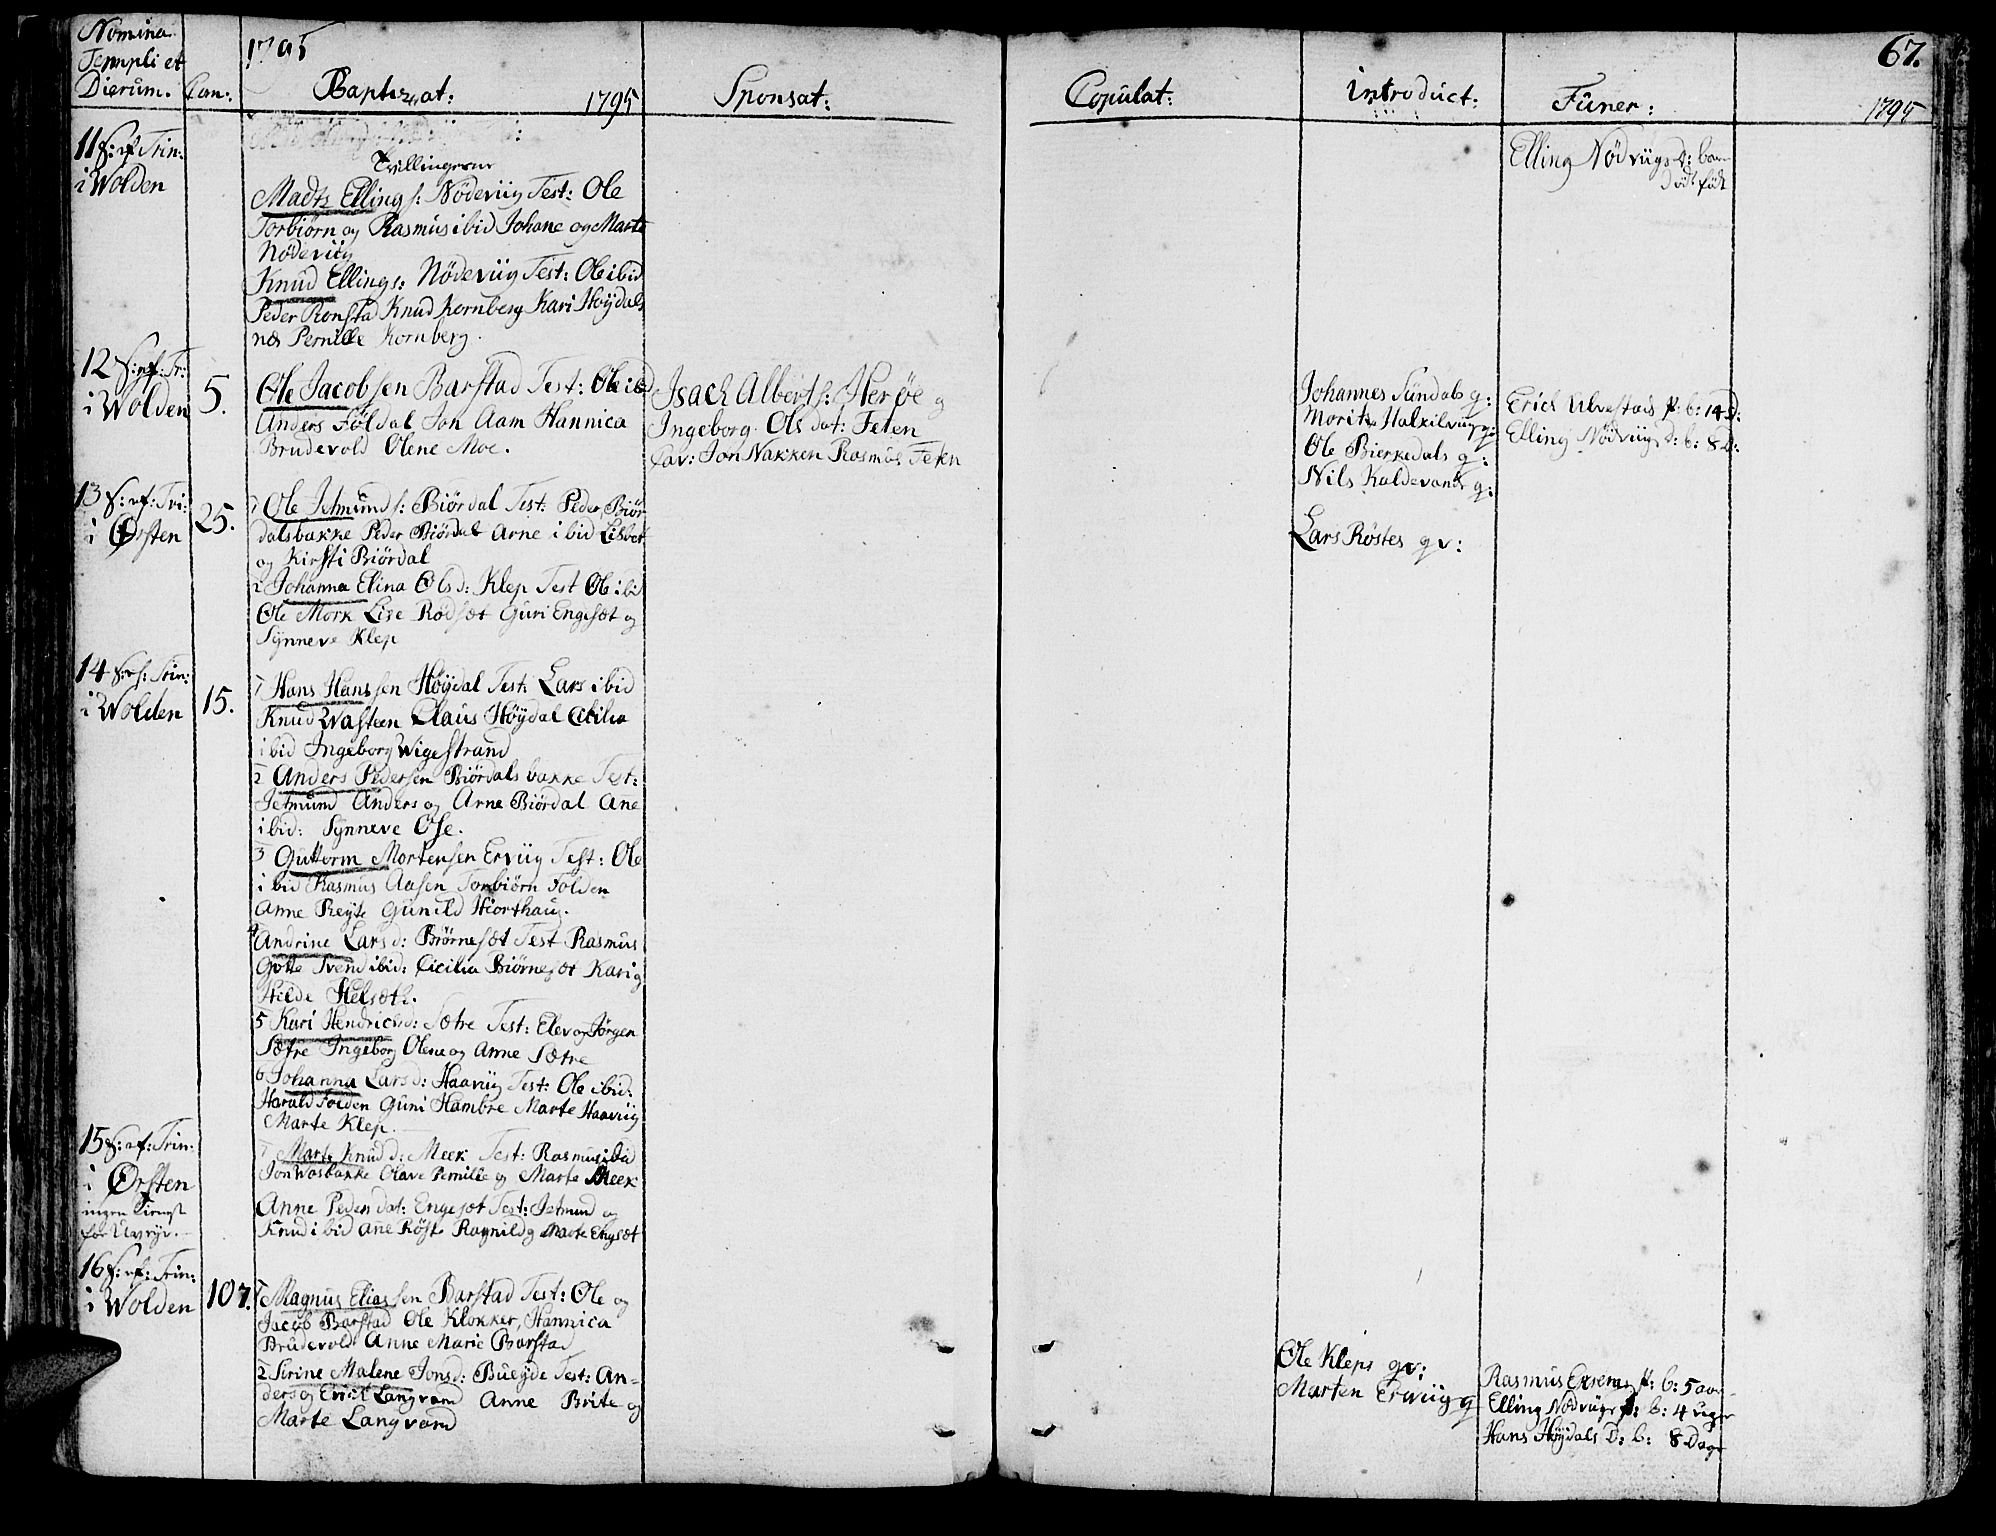 Nomina
Templi et
Dierum. Com:
1795
Baptizat: 1795
Sponsat:
Copulat:
introduct:
Funer: 1795
67.
11 S: ef Trin:
i Wolden
Tvillingerne
Madtz Elling s: Nödeviig Test: Ole
Torbiørn og Rasmus ibid Johane og Marte
Nödeviig
Knud Ellings: Nödeviig Test: Ole ibid
Peder Ronstad Knud Kornberg Kari Høydals
nes Pernille Kornberg.
Elling Nödviigs D: barn
død født
12 S: ef: Tr:
i Wolden 5.
Ole Jacobsen Barstad Test: Ole ibd
Anders Føldal Jon Aam Hannica
Brudevold Olene Moe.
Isach Alberts: Herøe og
Ingeborg Ols dat: Feten
Cav: Jon Nakken Rasmus Feten
Johannes Sundals q:
Moritz Halkilviigs q:
Ole Bierkedals q:
Nils Kaldevands q:
Erich Ulvestads p: b: 14 D:
Elling Nödviigs D: b: 8 D:
13 S: ef: Tri:
i Ørsten 25.
1 Ole Jetmunds: Biördal Test: Peder Biör
dalsbakke Peder Biördal Arne ibid Lisbet
og Kirsti Biördal
2 Johanna Elina Olsd: Klep Test Ole ibid
Ole Mork Lise Rødsæt Guri Engesæt og
Synneve Klep
Lars Røstes q v:
14 S: ef: Trin:
i Wolden 15.
1 Hans Hanssen Høydal Test: Lars ibid
Knud Wasteen Claus Høydal Cicilia
ibid Ingeborg Wigestrand
2 Anders Pedersen Biördalsbakke Test:
Jetmund Anders og Arne Biördal Ane
ibid: Synneve Ose.
3 Guttorm Mortensen Erviig Test: Ole
ibid Rasmus Aasen Torbiørn Folden
Anne Reyte Gunild Hiorthaug.
4 Andrine Larsd: Biørnesæt Test Rasmus
Gøtte Svend ibid: Cicilia Biørnesæt Kari og
Hilde Helsæth.
5 Kari Hendrichsd: Sætre Test: Elev og Jörgen
Sætre Ingeborg Olene og Anne Sætre
6 Johanna Larsd: Haaviig Test: Ole ibid:
Harald Folden Guni Hambre Marte Haaviig
Marte Klep.
7 Marte Knudd: Meek Test: Rasmus ibid
Jon Wasbakke Olave Pernille og Marte Meek
15 S: ef: Trin:
i Ørsten
ingen Tienest
for Uveyr.
Anne Peders dat: Engesæt Test: Jetmund og
Knud ibid Ane Røste Ragnild og Marte Engesæt
16 S: ef: Trin:
i Wolden 107.
1 Magnus Eliassen Barstad Test: Ole og
Jacob Barstad Ole Klokker, Hannica
Brudevold Anne Marie Barstad
2 Sirine Malene Jonsd: Bueyde Test: An-
ders og Erich Langvam Anne Brite og
Marte Langvam
Ole Kleps q v:
Marten Erviig q
Rasmus p: b: 5 aar
Elling Nödviigs p: b: 4 uger
Hans Høydals D: b: 8 Dage